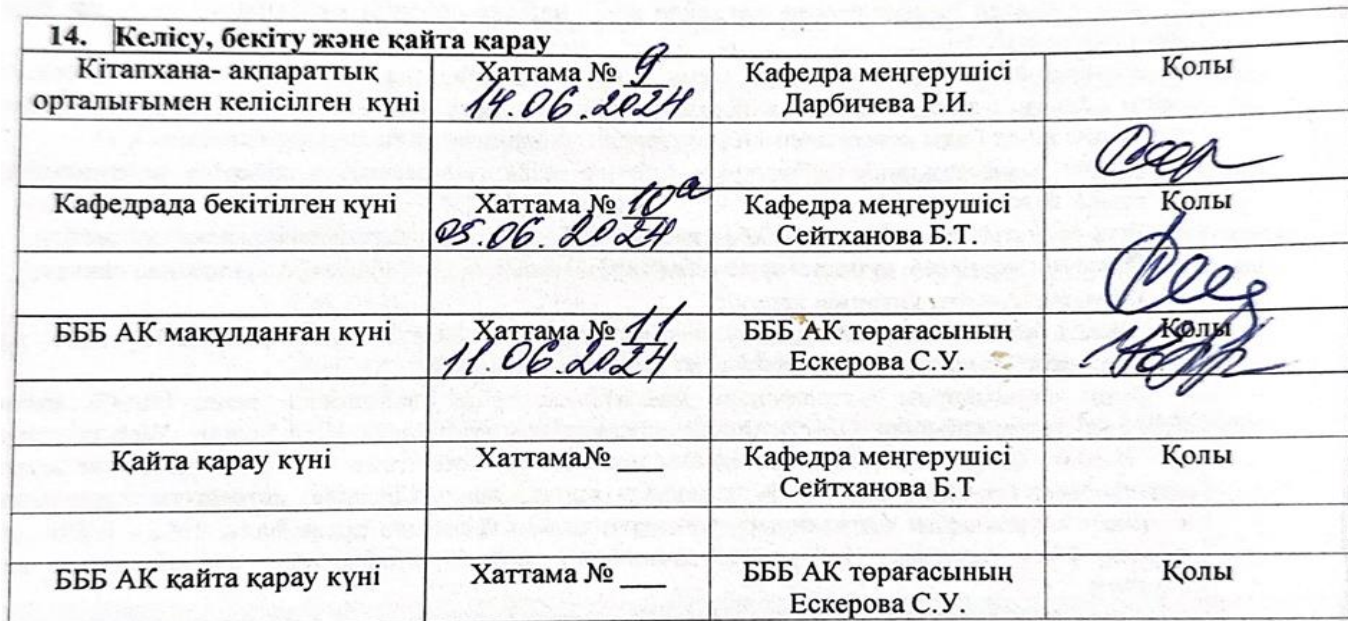 14. Келісу, бекіту және қайта қарау
Кітапхана- ақпараттық орталығымен келісілген күні
Хаттама № 9
14.06.2024
Кафедра меңгерушісі
Дарбичева Р.И.
Қолы
Кафедрада бекітілген күні
Хаттама № 10а
05.06.2024
Кафедра меңгерушісі
Сейтханова Б.Т.
Қолы
БББ АК мақұлданған күні
Хаттама № 11
11.06.2024
БББ АК төрағасының
Ескерова С.У.
Қолы
Қайта қарау күні
Хаттама№ ___
Кафедра меңгерушісі
Сейтханова Б.Т
Қолы
БББ АК қайта қарау күні
Хаттама № ___
БББ АК төрағасының
Ескерова С.У.
Қолы